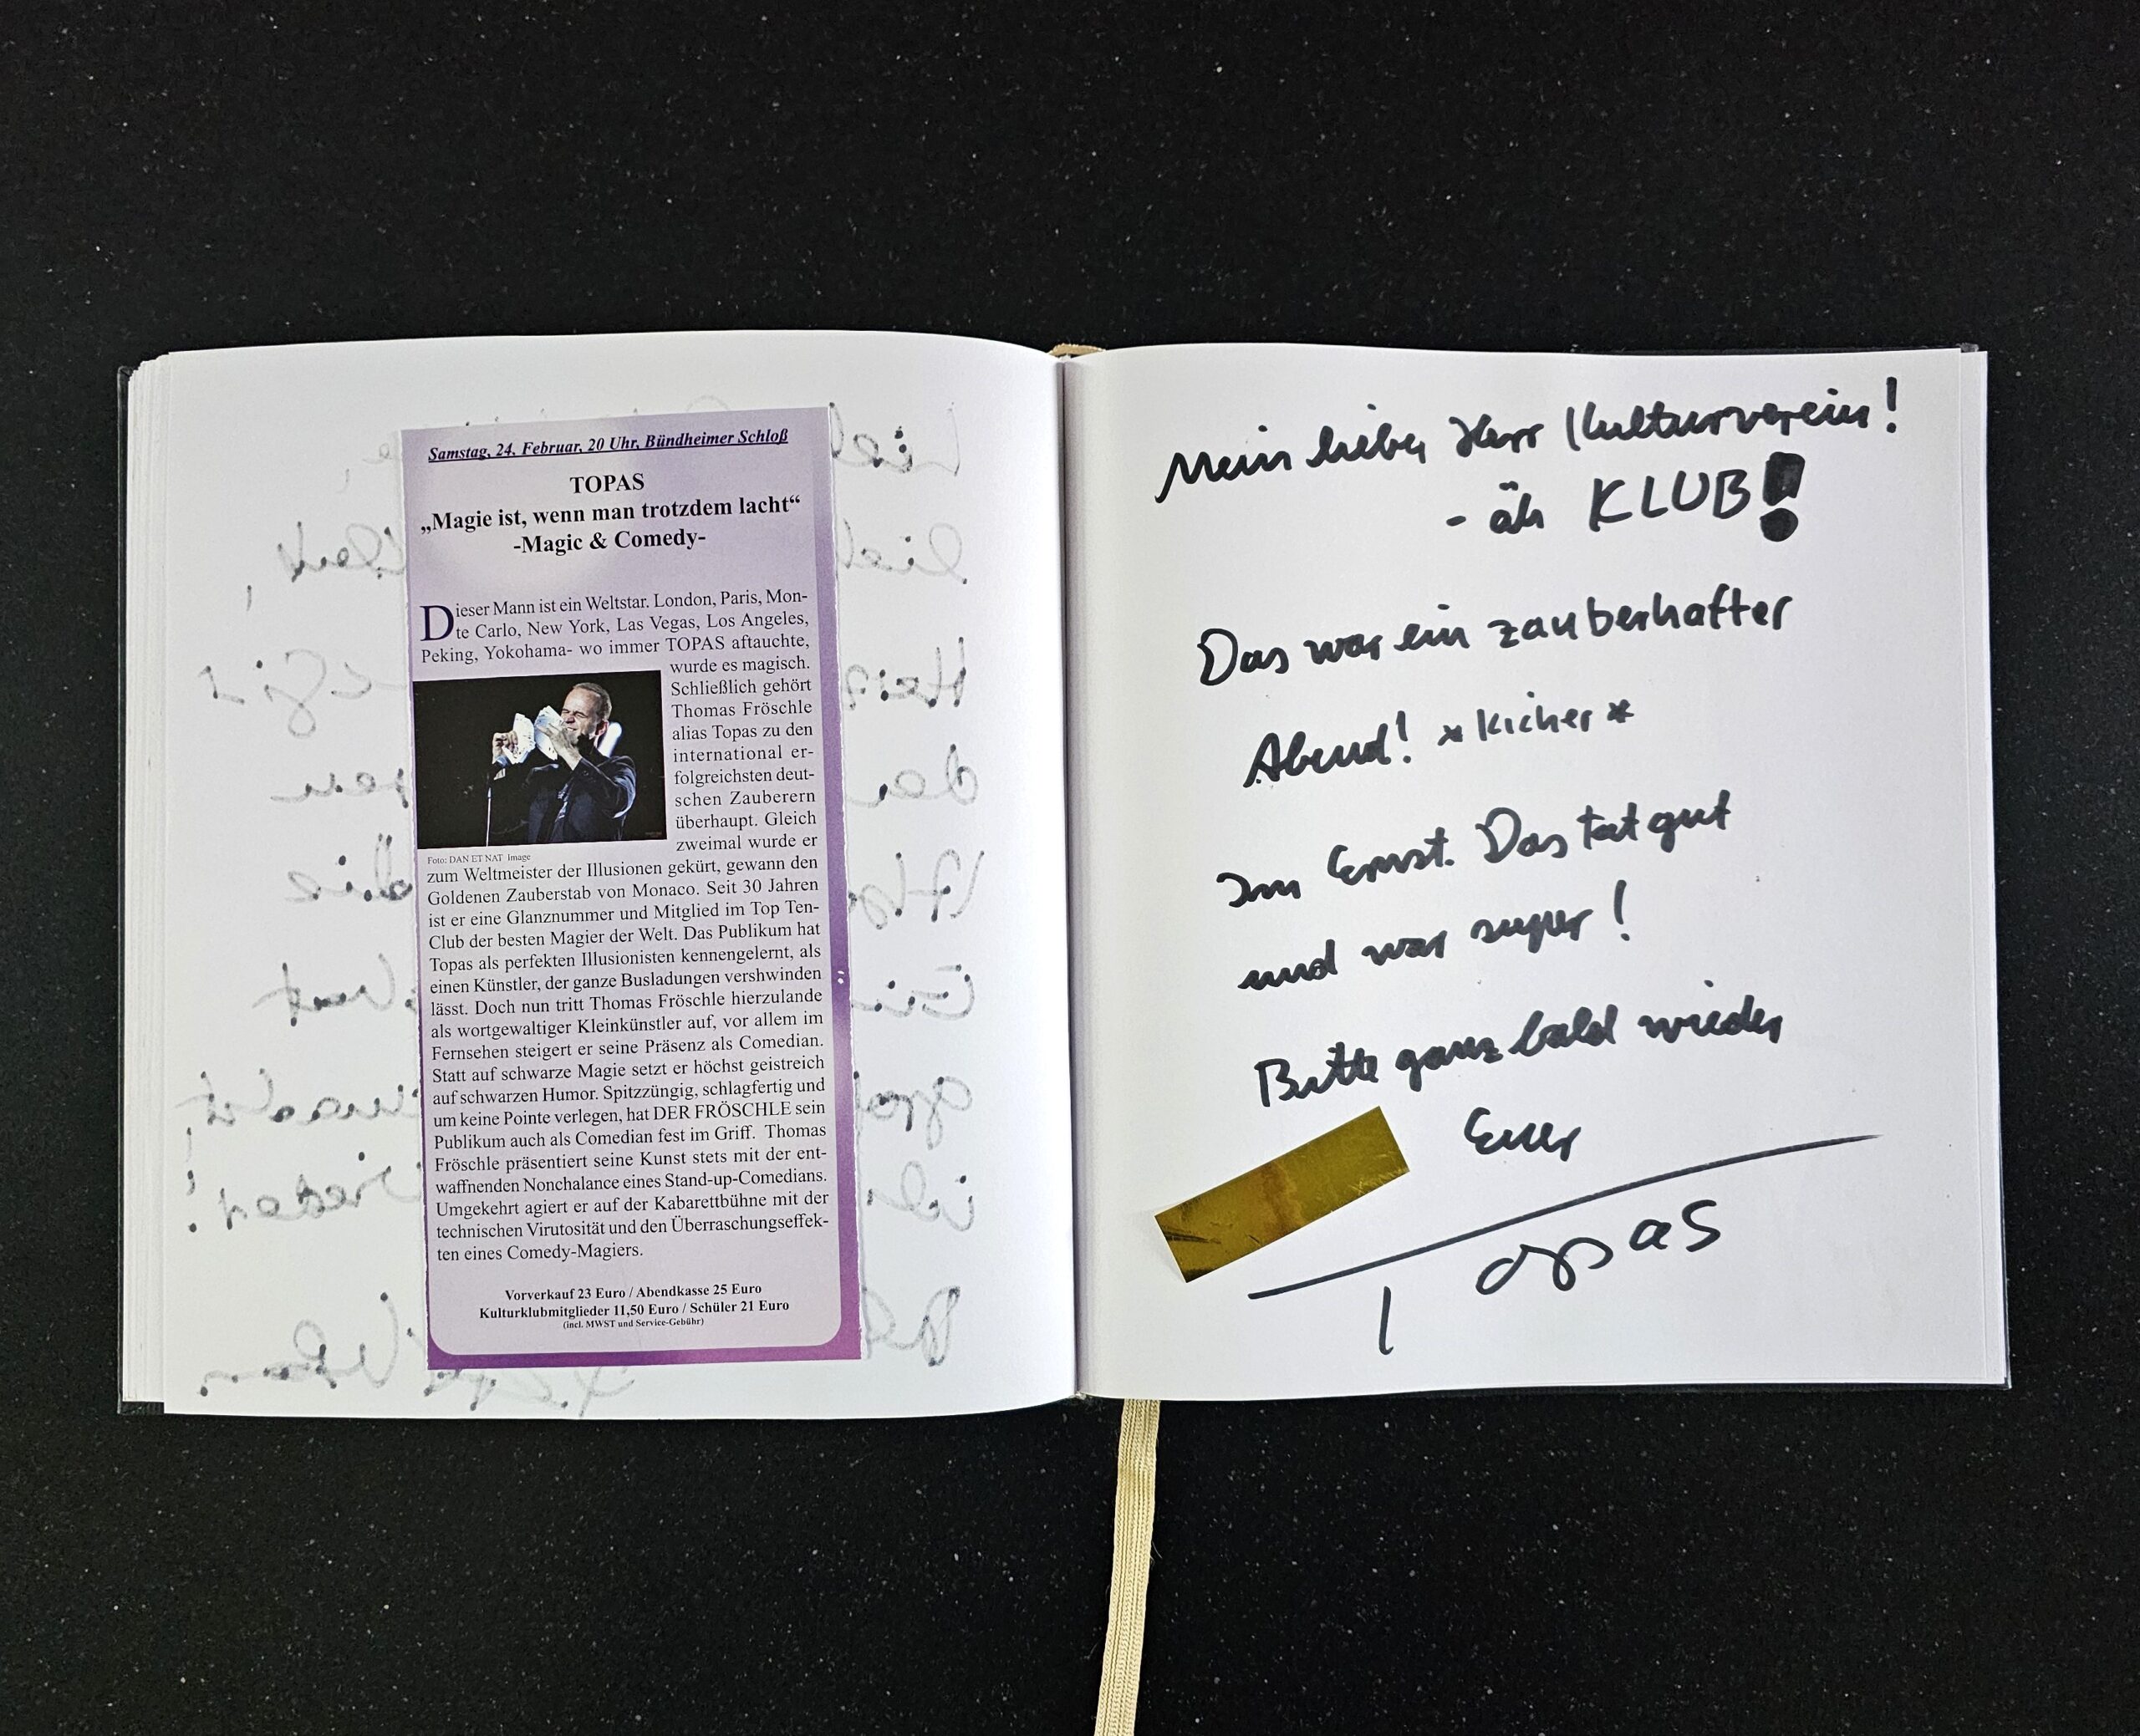 Samstag, 24. Februar, 20 Uhr, Bündheimer Schloß
TOPAS
„Magie ist, wenn man trotzdem lacht“
-Magic & Comedy-
Dieser Mann ist ein Weltstar. London, Paris, Mon-
te Carlo, New York, Las Vegas, Los Angeles,
Peking, Yokohama- wo immer TOPAS aftauchte,
wurde es magisch.
Schließlich gehört
Thomas Fröschle
alias Topas zu den
international er-
folgreichsten deut-
schen Zauberern
überhaupt. Gleich
zweimal wurde er
Foto: DAN ET NAT Image
zum Weltmeister der Illusionen gekürt, gewann den
Goldenen Zauberstab von Monaco. Seit 30 Jahren
ist er eine Glanznummer und Mitglied im Top Ten-
Club der besten Magier der Welt. Das Publikum hat
Topas als perfekten Illusionisten kennengelernt, als
einen Künstler, der ganze Busladungen vershwinden
lässt. Doch nun tritt Thomas Fröschle hierzulande
als wortgewaltiger Kleinkünstler auf, vor allem im
Fernsehen steigert er seine Präsenz als Comedian.
Statt auf schwarze Magie setzt er höchst geistreich
auf schwarzen Humor. Spitzzüngig, schlagfertig und
um keine Pointe verlegen, hat DER FRÖSCHLE sein
Publikum auch als Comedian fest im Griff. Thomas
Fröschle präsentiert seine Kunst stets mit der ent-
waffnenden Nonchalance eines Stand-up-Comedians.
Umgekehrt agiert er auf der Kabarettbühne mit der
technischen Virutosität und den Überraschungseffek-
ten eines Comedy-Magiers.
Vorverkauf 23 Euro / Abendkasse 25 Euro
Kulturklubmitglieder 11,50 Euro / Schüler 21 Euro
(incl. MWST und Service-Gebühr)
Mein lieber Herr Kulturverein!
- äh KLUB!
Das war ein zauberhafter
Abend! *kicher*
Im Ernst. Das tat gut
und war super!
Bitte ganz bald wieder
Euer
Topas